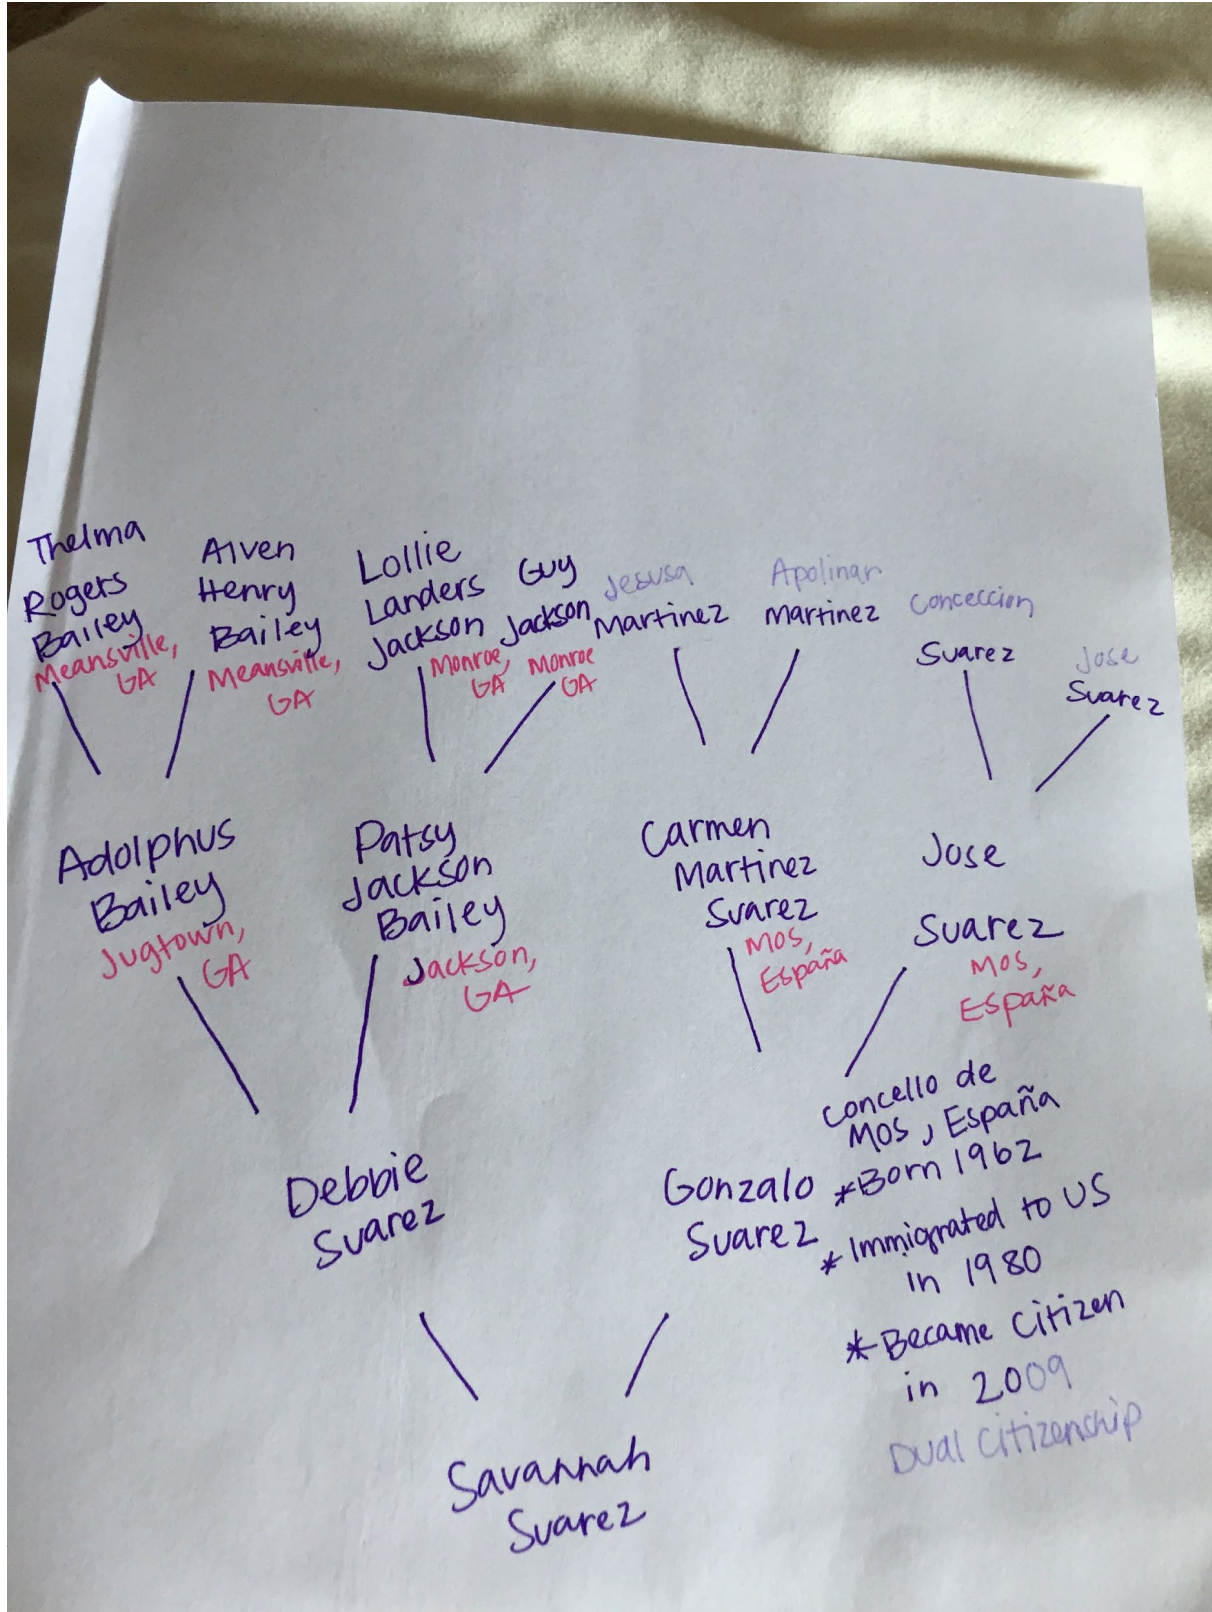 Thelma
Rogers
Bailey
Meansville,
GA
Alven
Henry
Bailey
Meansville,
GA
Lollie
Landers
Jackson
Monroe,
GA
Guy
Jackson
Monroe
GA
Jesusa
Martinez
Apolinar
Martinez
Conceccion
Suarez
Jose
Suarez
Adolphus
Bailey
Jugtown,
GA
Patsy
Jackson
Bailey
Jackson,
GA
Carmen
Martinez
Suarez
Mos,
España
Jose
Suarez
Mos,
España
Debbie
Suarez
Gonzalo
Suarez
Concello de
Mos, España
*Born 1962
*Immigrated to US
in 1980
*Became Citizen
in 2009
Dual Citizenship
Savannah
Suarez